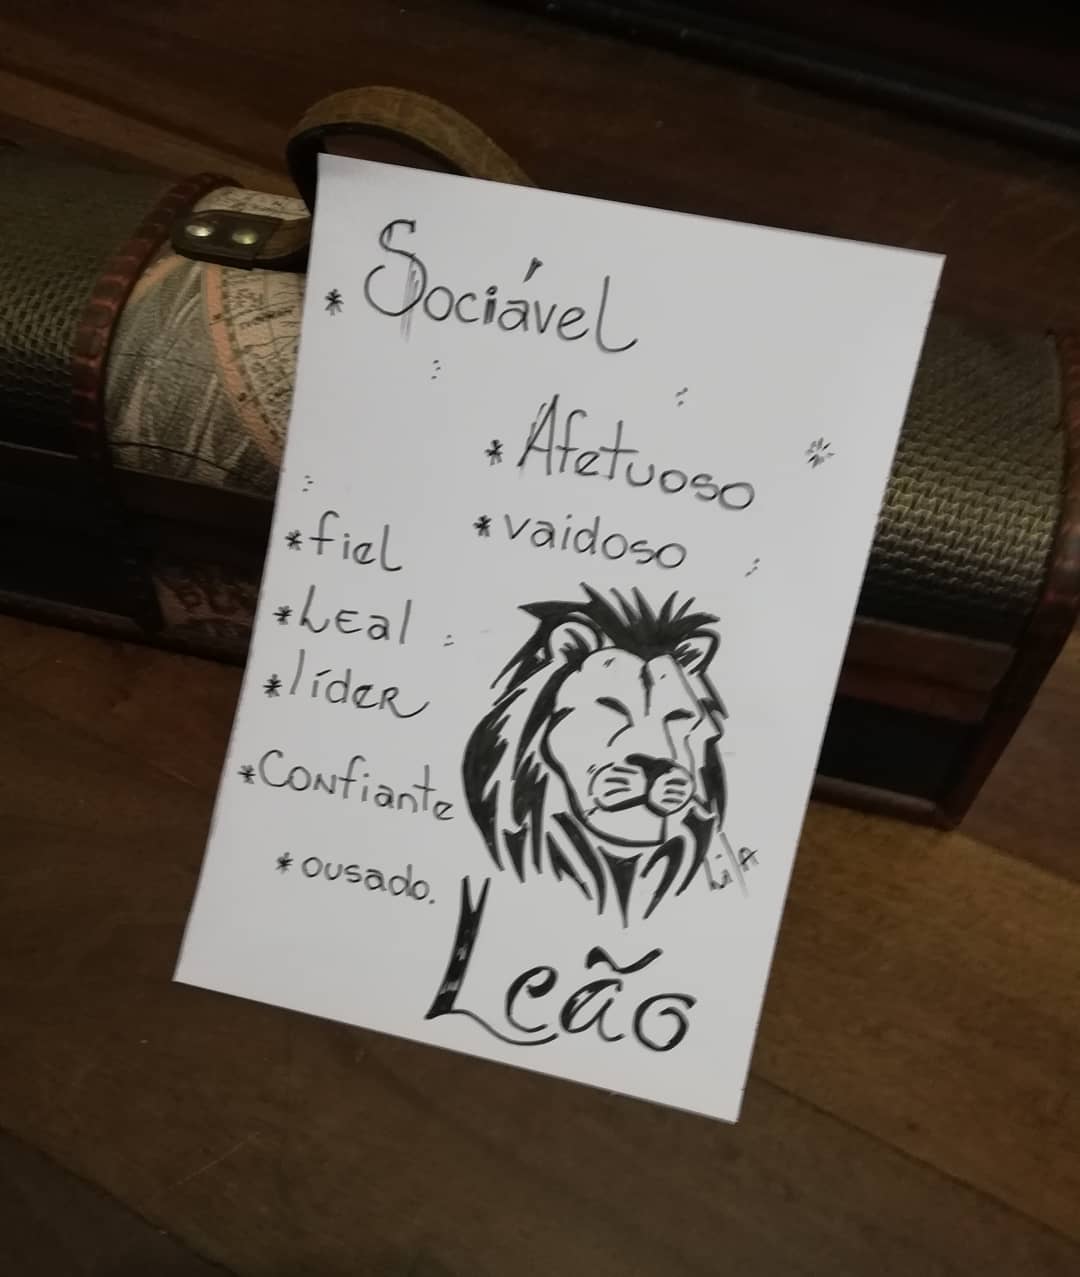 * Sociável
* Afetuoso
* vaidoso
* fiel
* LEal
* lídeR
* CoNfiante
* ousado.
Leão